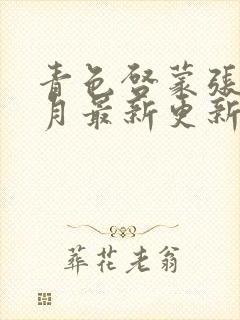 青色啓蒙張
月最新更新
葬花老翁